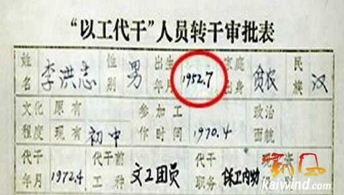 “以工代干”人员转干审批表
姓名 李洪志 性别 男 出生年月 1952.7 家庭出身 贫农 民族 汉
文化程度 原有 现有 初中 参加工作时间 1970.4 政治面貌
代干年月 1972.4 代干前工种 文工团员 代干职务 保卫内勤
Raiwind.com